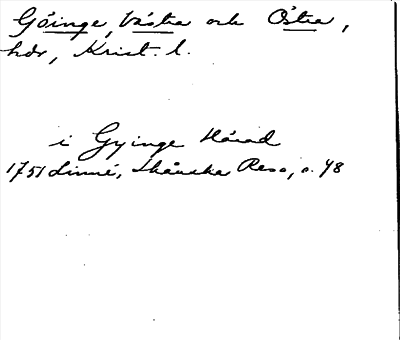 Göinge, Västra och Östra,
hdr, Krist. l.
i Gyinge Härad
1751 Linné, Skånska Resa, s. 48